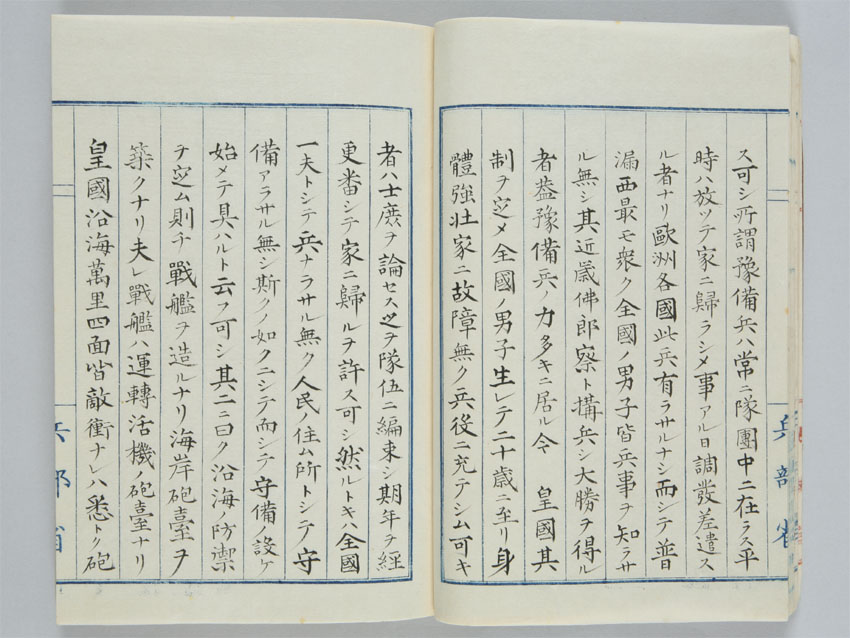 ス可シ所謂豫備兵ハ常ニ隊團中ニ在ラス平
時ハ放ツテ家ニ歸ラシメ事アル日調發差遣ス
ル者ナリ歐洲各國此兵有ラサルナシ而シテ普
漏西最モ衆ク全國ノ男子皆兵事ヲ知ラサ
ル無シ其近歳佛郎察ト搆兵シ大勝ヲ得ル
者葢豫備兵ノ力多キニ居ル今 皇國其
制ヲ定メ全國ノ男子生レテ二十歳ニ至リ身
體強壮家ニ故障無ク兵役ニ充テシム可キ
者ハ士庻ヲ論セス之ヲ隊伍ニ編束シ期年ヲ經
更番シテ家ニ歸ルヲ許ス可シ然ルトキハ全國
一夫トシテ兵ナラサル無ク人民ノ住ム所トシテ守
備アラサル無シ斯クノ如クニシテ而シテ守備ノ設ケ
始メテ具ハルト云フ可シ其二ニ曰ク沿海ノ防禦
ヲ定ム則チ戰艦ヲ造ルナリ海岸砲臺ヲ
築クナリ夫レ戰艦ハ運轉活機ノ砲臺ナリ
皇國沿海萬里四面皆敵衝ナレハ悉トク砲
兵部省
兵部省